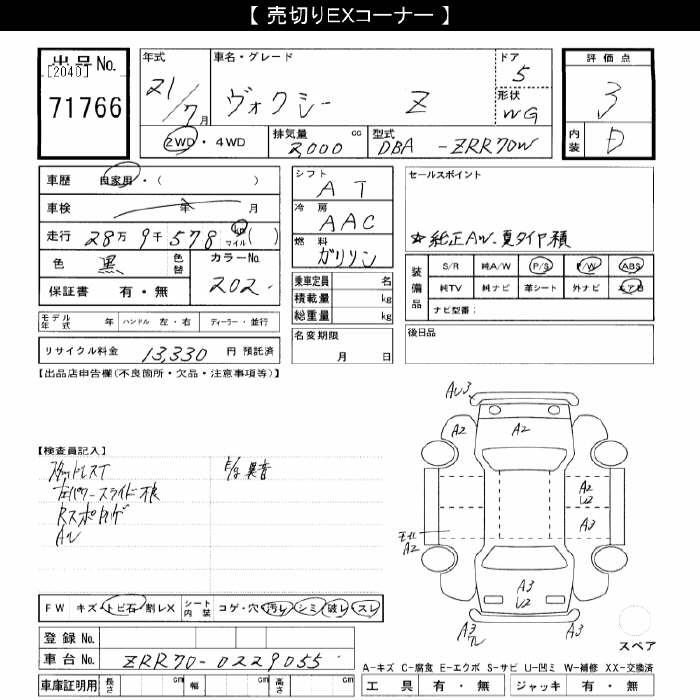 【 売切りEXコーナー 】
出品No.
[2040]
71766
年式
21/7月
車名・グレード
ヴォクシー Z
ドア
5
形状
WG
評価点
3
内装
D
2WD・4WD
排気量 cc
2,000
型式
DBA -ZRR70W
車歴 自家用・( )
車検 年 月
走行 28万9千578 km マイル( )
色 黒 色替
カラーNo.
202
保証書 有・無
シフト
AT
冷房
AAC
燃料
ガソリン
乗車定員 名
積載量 kg
総重量 kg
セールスポイント
☆純正AW.夏タイヤ積
装備品
S/R 純A/W P/S P/W ABS
純TV 純ナビ 革シート 外ナビ エアB
ナビ型番:
モデル年式 年 ハンドル 左・右 ディーラー・並行
名変期限
月 日
後日品
リサイクル料金 13,330 円 預託済
【出品店申告欄(不良箇所・欠品・注意事項等)】
【検査員記入】
スタッドレスT
左パワースライド不良
Aル
異音
A2
A2
A2
U2
A3
A2
A3
U2
A3
A3
FW キズ・トビ石・割レX シート内装 コゲ・穴・汚レ・シミ・破レ・スレ
スペア
登録 No.
車台 No. ZRR70-0229055
A-キズ C-腐食 E-エクボ S-サビ U-凹ミ W-補修 XX-交換済
車庫証明用 長さ cm 幅 cm 高さ cm
工具 有・無 ジャッキ 有・無